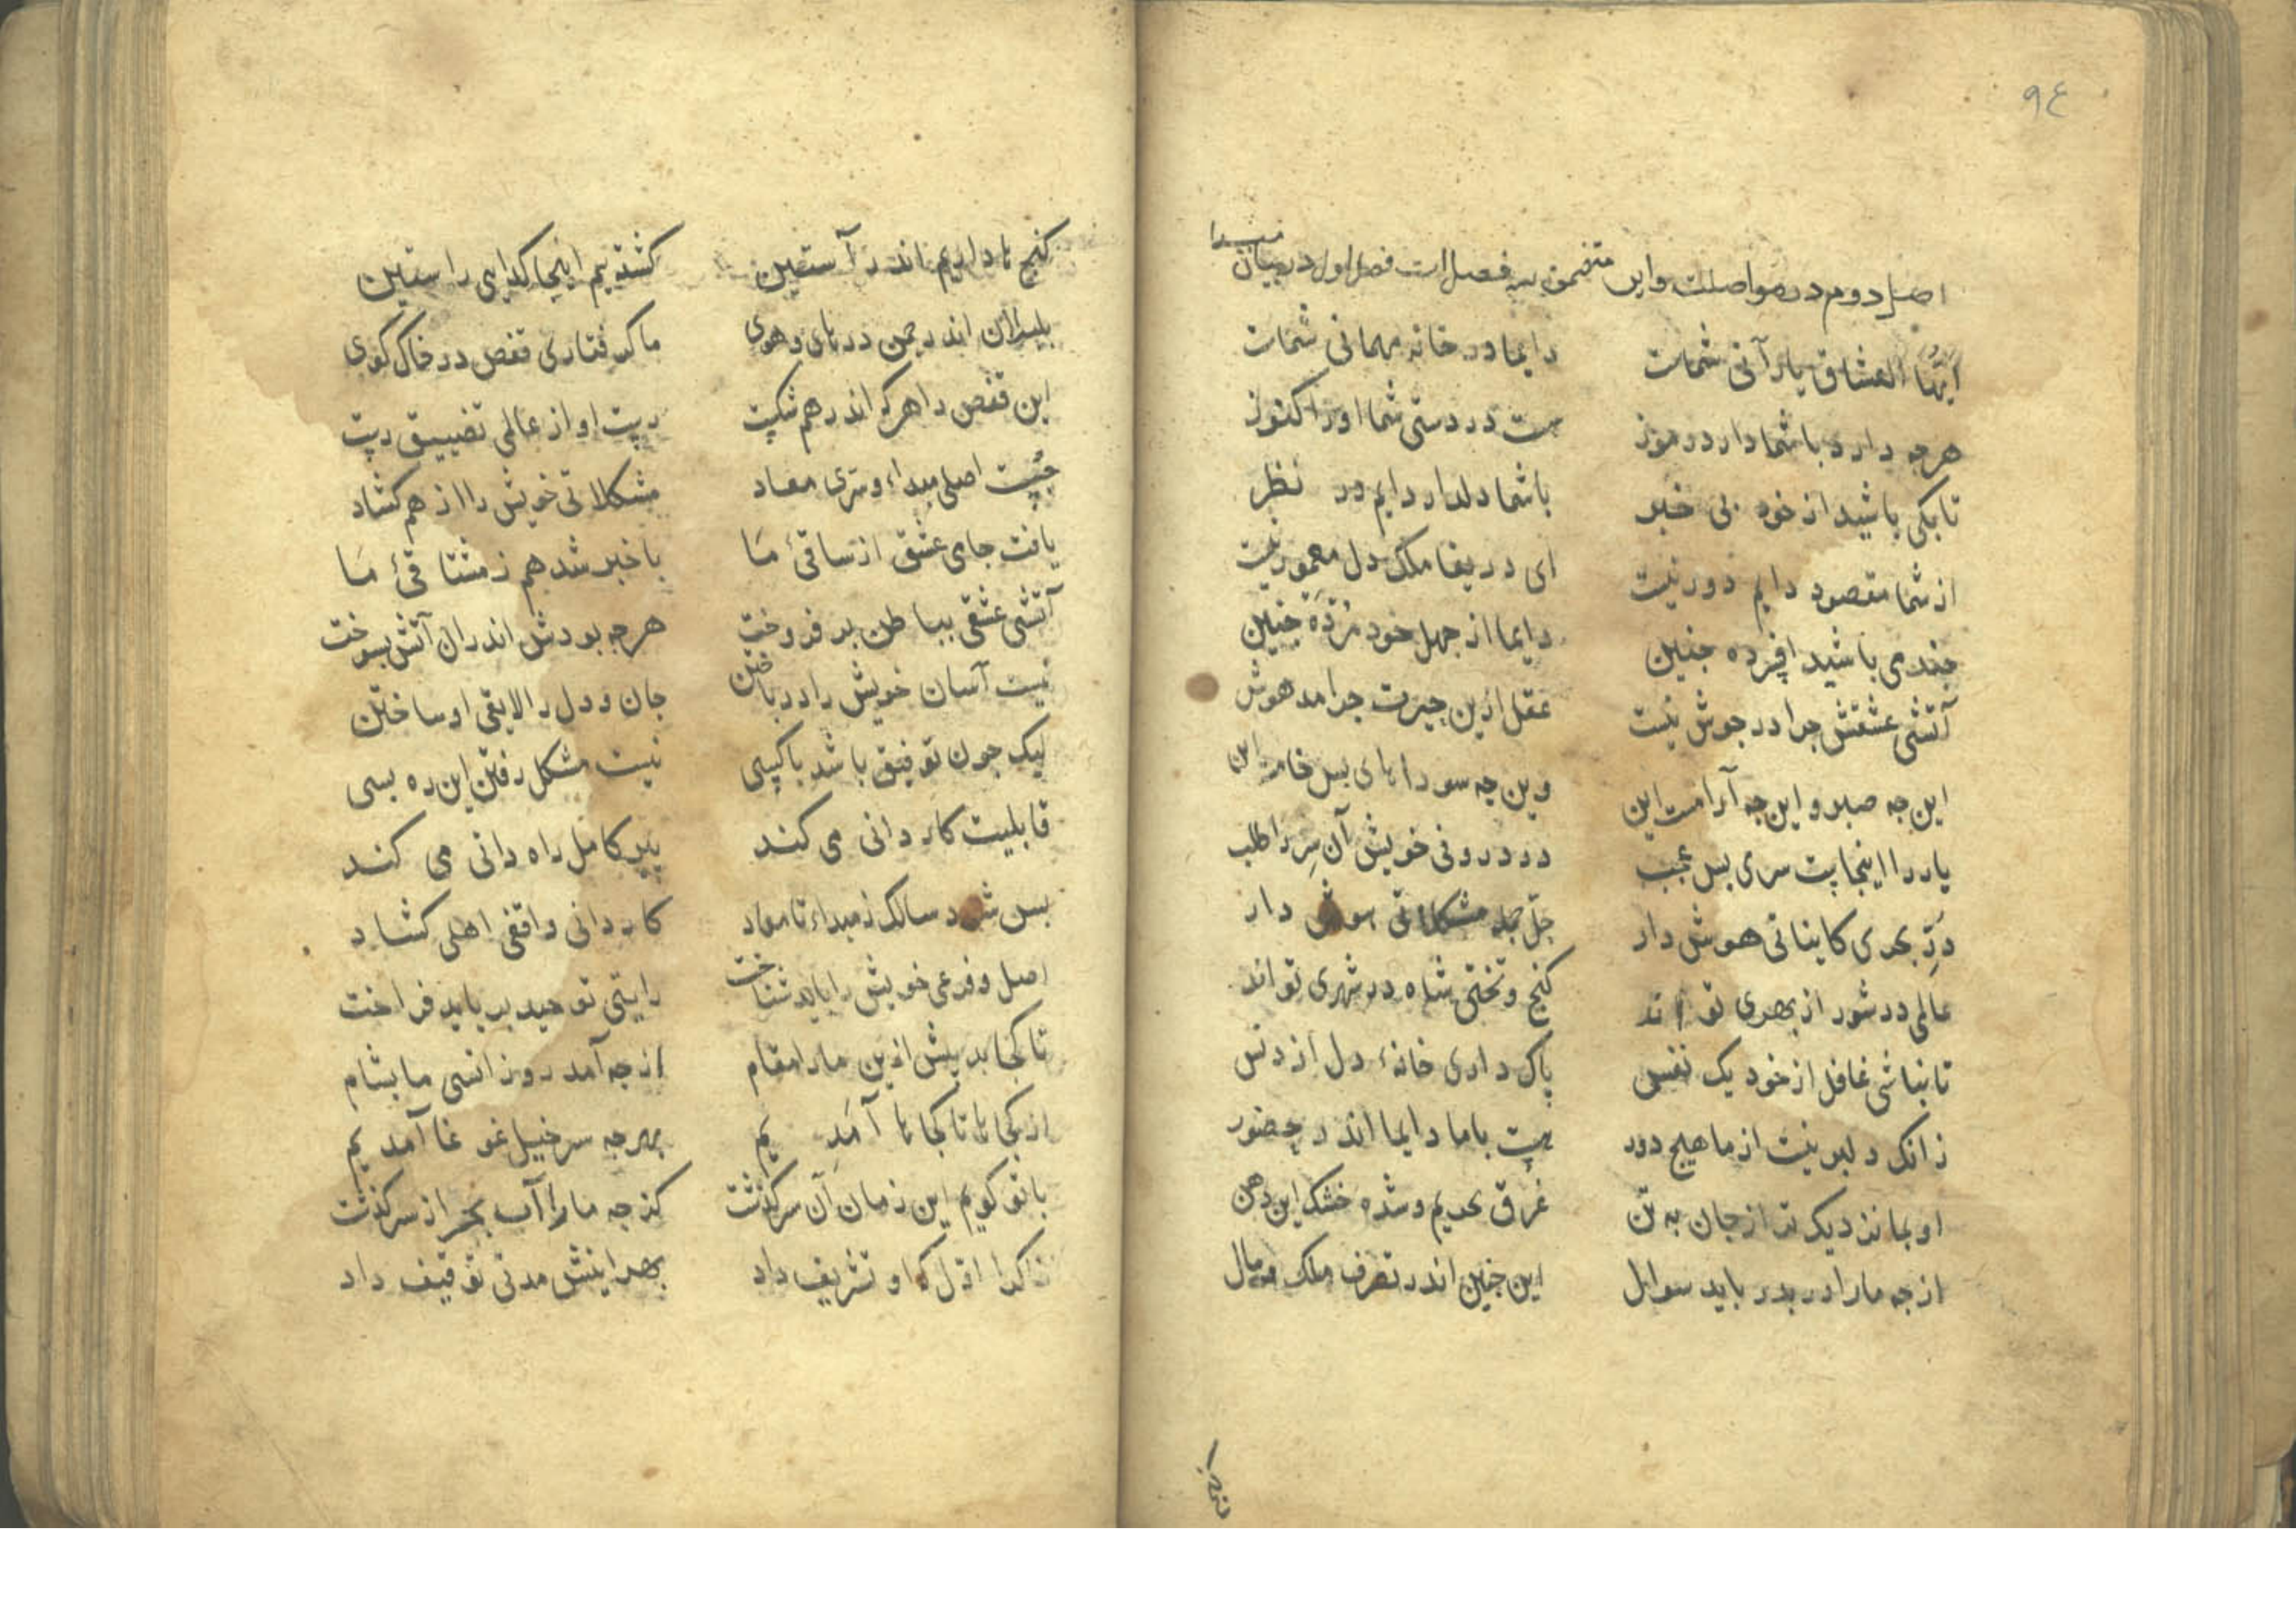 ۹۴
اصل دوم در مواصلت و این متضمن سه فصل است فصل اول در بیان مبدا
ایها العشاق یار آنی شماست دایما در خانه مهمانی شماست
هرچه دارد با شما دارد رموز هست در دستی شما او را کنوز
تا بکی باشید از خود بی خبر با شما دلدار دایم در نظر
از شما مقصود دایم دور نیست ای دریغا ملک دل معمور نیست
چند می باشید افسرده چنین دایما از جهل خود مرده چنین
آتشی عشقش چرا در جوش نیست عقل ازین حیرت چرا مدهوش
این چه صبر و این چه آرامست این وین چه سوداهای بس خامست این
یار را اینجاست سری بس عجب در درونی خویش آن سر را طلب
در بحری کایناتی هوش دار حل جمله مشکلاتی هوش دار
عالمی در شور از بهری تو اند کنج و تختی شاه در شهری تو اند
تا نباشی غافل از خود یک نفس پاک داری خانهٔ دل از دنس
زانک دلبر نیست از ما هیچ دور هست با ما دایما اندر حضور
او بما نزدیک تر از جان به تن غرق بحریم و شده خشک این دهن
از چه ما را در بدر باید سوال این چنین اندر تصرف ملک و مال
کنج ها داریم اندر آستین کشته یم اینجا کدایی راستین
بلبلان اندر چمن در های و هوی ما کرفتاری قفص در خاک کوی
این قفص را هرکه اندر هم شکست رست او از عالمی تضییق رست
جست اصلی مبداء و سری معاد مشکلاتی خویش را از هم کشاد
یافت جای عشق از ساقیٔ ما با خبر شد هم ز مشتاقیٔ ما
آتشی عشقی بباطن بر فروخت هرچه بودش اندران آتش بسوخت
نیست آسان خویش را در باختن جان و دل را لایقی او ساختن
لیک چون توفیق باشد با کسی نیست مشکل رفتن این ره بسی
قابلیت کار دانی می کند پیر کامل راه دانی می کند
بس شود سالک ز مبداء تا معاد کاردانی واقفی اهلی کشاد
اصل و فرعی خویش را باید شناخت رایتی توحید بر باید فراخت
تا کجا بد پیش ازین ما را مقام از چه آمد روز انسی ما بشام
از کجاها تا کجاها آمدیم بهر چه سرخیل غوغا آمدیم
با تو کویم این زمان آن سرکذشت کز چه ما را آب بحر از سر کذشت
خاک را اول که او تشریف داد بهر اینش مدتی توقیف داد